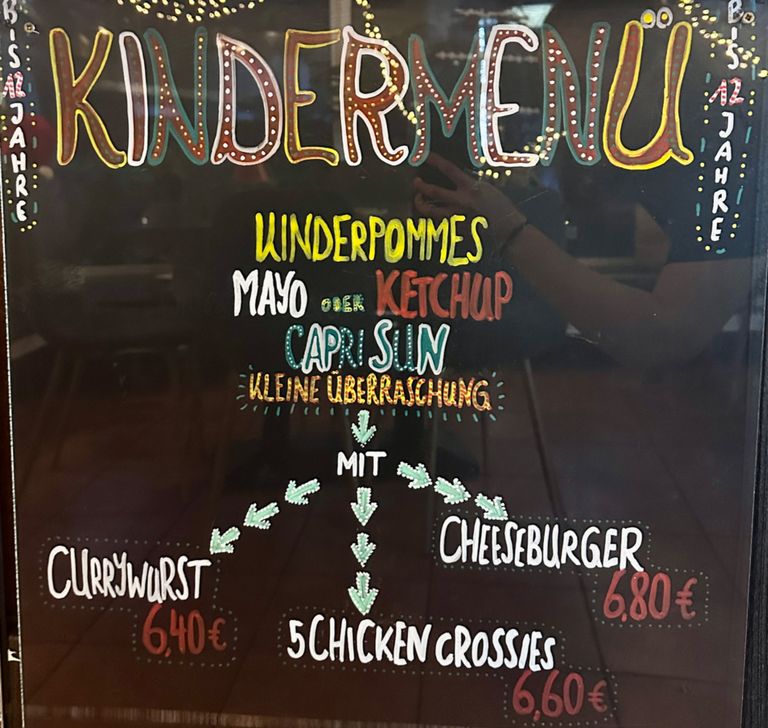 KINDERMENÜ
BIS 12 JAHRE
BIS 12 JAHRE
KINDERPOMMES
MAYO ODER KETCHUP
CAPRI SUN
KLEINE ÜBERRASCHUNG
MIT
CURRYWURST
6,40 €
CHEESEBURGER
6,80 €
5 CHICKEN CROSSIES
6,60 €